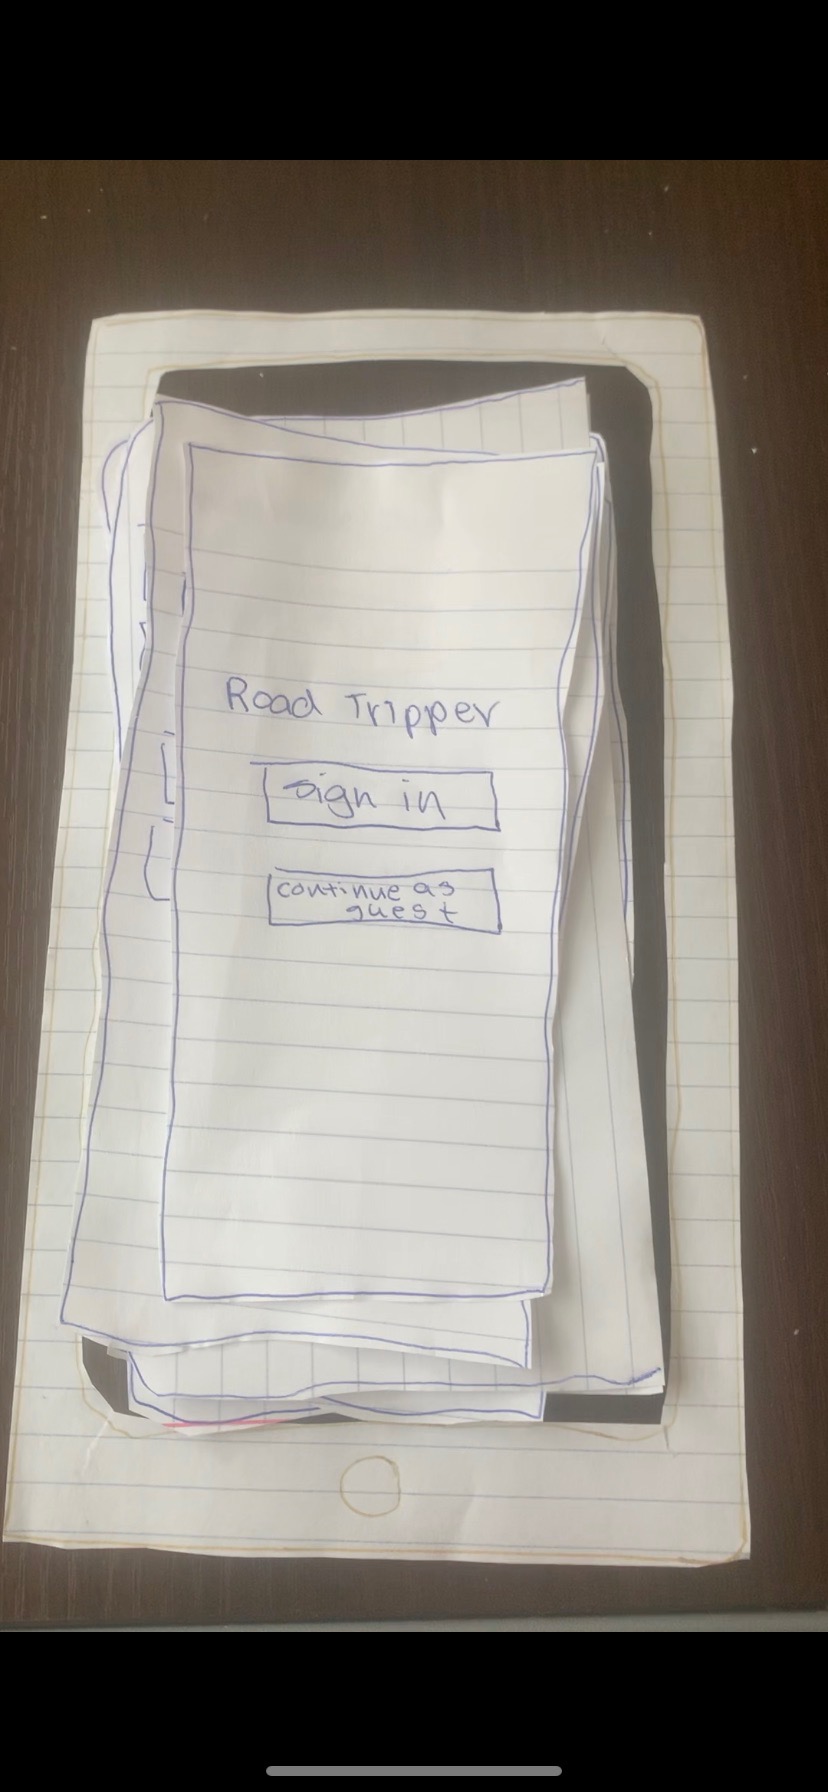 Road Tripper
sign in
continue as
guest